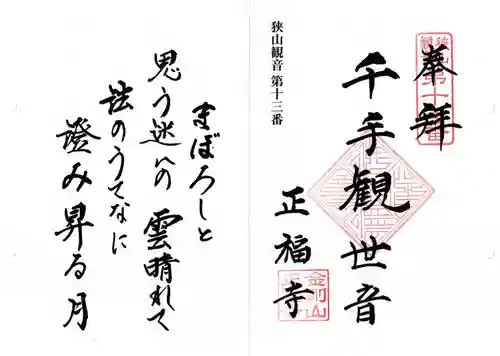 奉拝
千手観世音
正福寺
狭山観音 第十三番
まぼろしと
思う迷いの 雲晴れて
法のうてなに
澄み昇る月